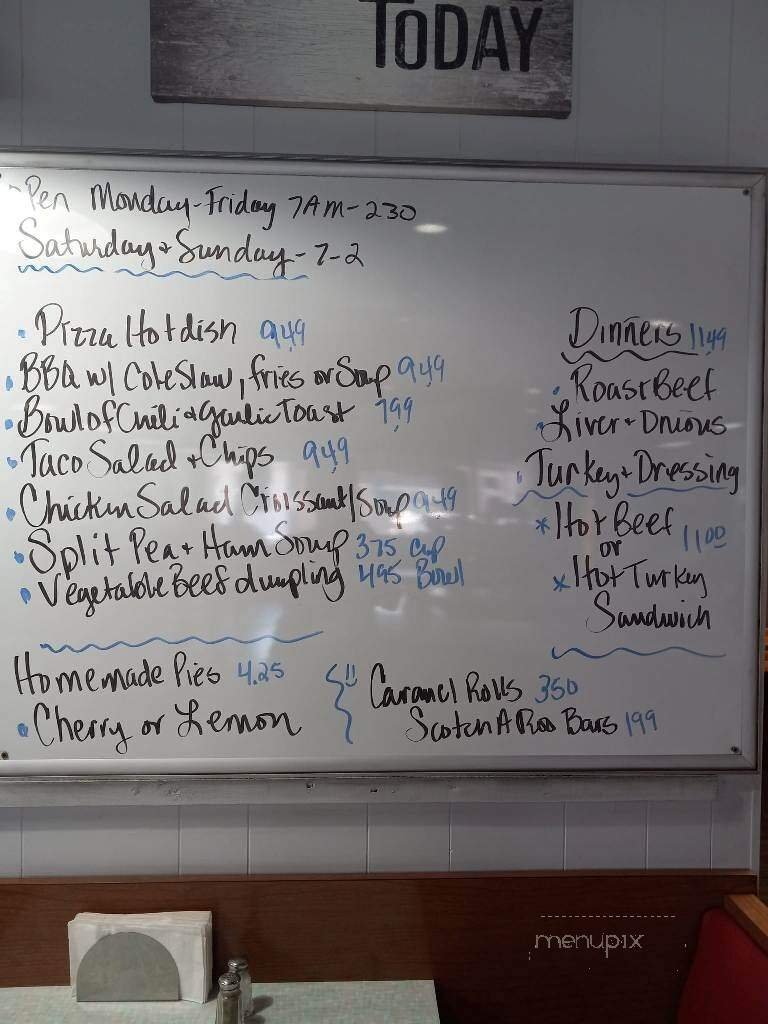 TODAY
Open Monday-Friday 7AM-230
Saturday & Sunday-7-2
Pizza Hotdish 9.49
BBQ w/ ColeSlaw, fries or Soup 9.49
Bowl of Chili & Garlic Toast 7.99
Taco Salad & Chips 9.49
Chicken Salad Croissant/Soup 9.49
Split Pea & Ham Soup 375 cup
Vegetable Beef dumpling 495 Bowl
Dinners 11.49
Roast Beef
Liver & Onions
Turkey & Dressing
* Hot Beef
or 11.00
* Hot Turkey
Sandwich
Homemade Pies 4.25
Cherry or Lemon
Caramel Rolls 350
Scotch A Roo Bars 199
menupix